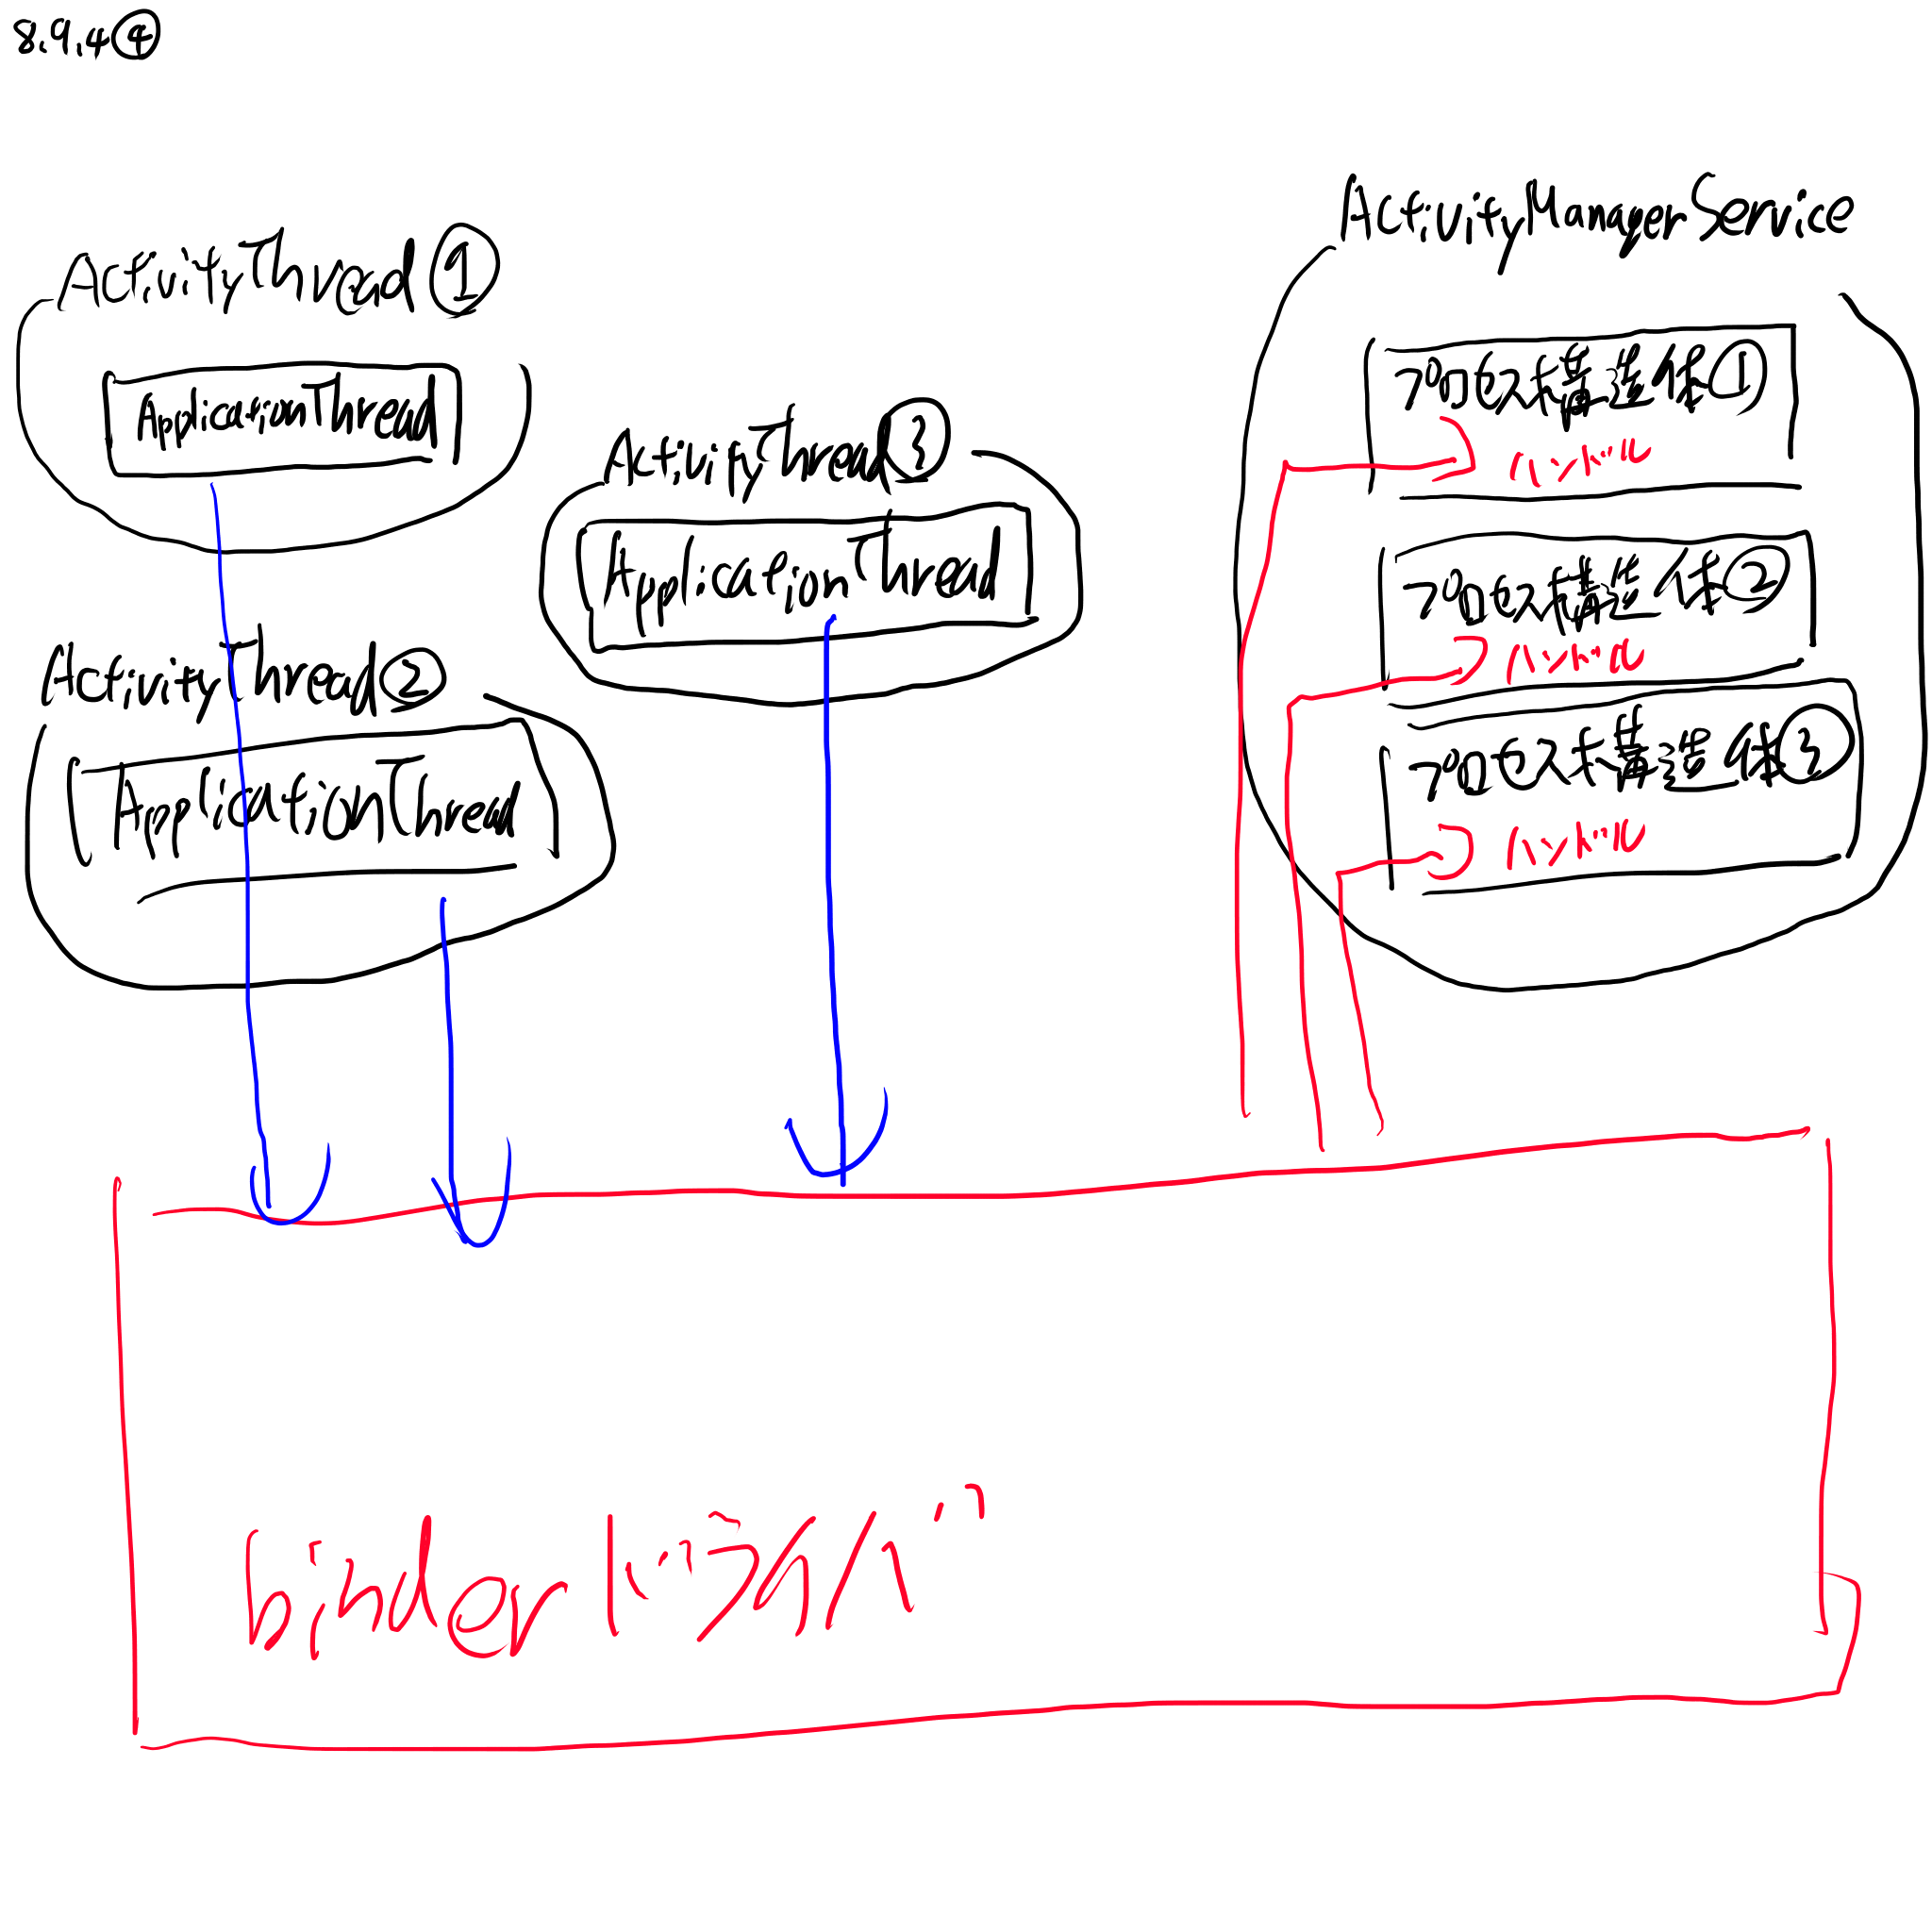 8.9.4④
ActivityThread①
ApplicationThread
ActivityThread②
ApplicationThread
ActivityThread③
ApplicationThread
ActivityManagerService
プロセス構造体①
ハンドル
プロセス構造体②
ハンドル
プロセス構造体③
ハンドル
binderドライバ